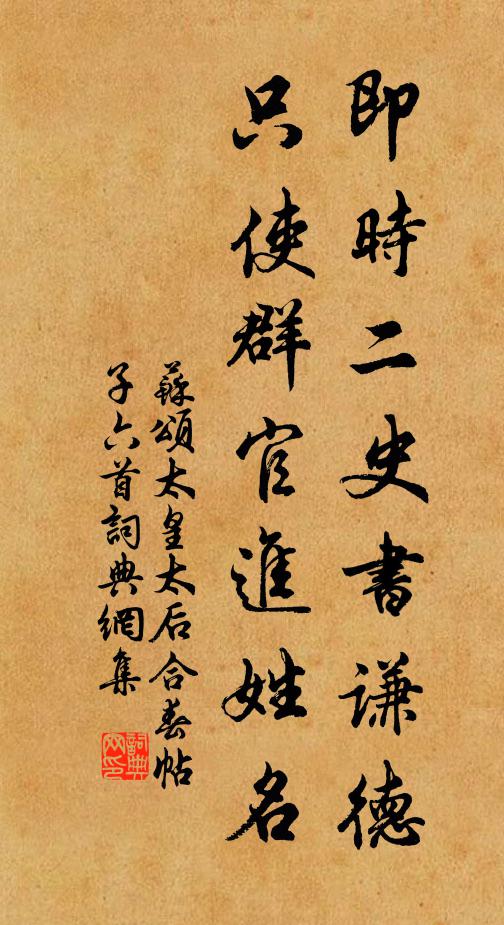 即時二史書謙德
只使群官進姓名
蘇頌太皇太后合春帖
子六首詞典網集
詞典網印